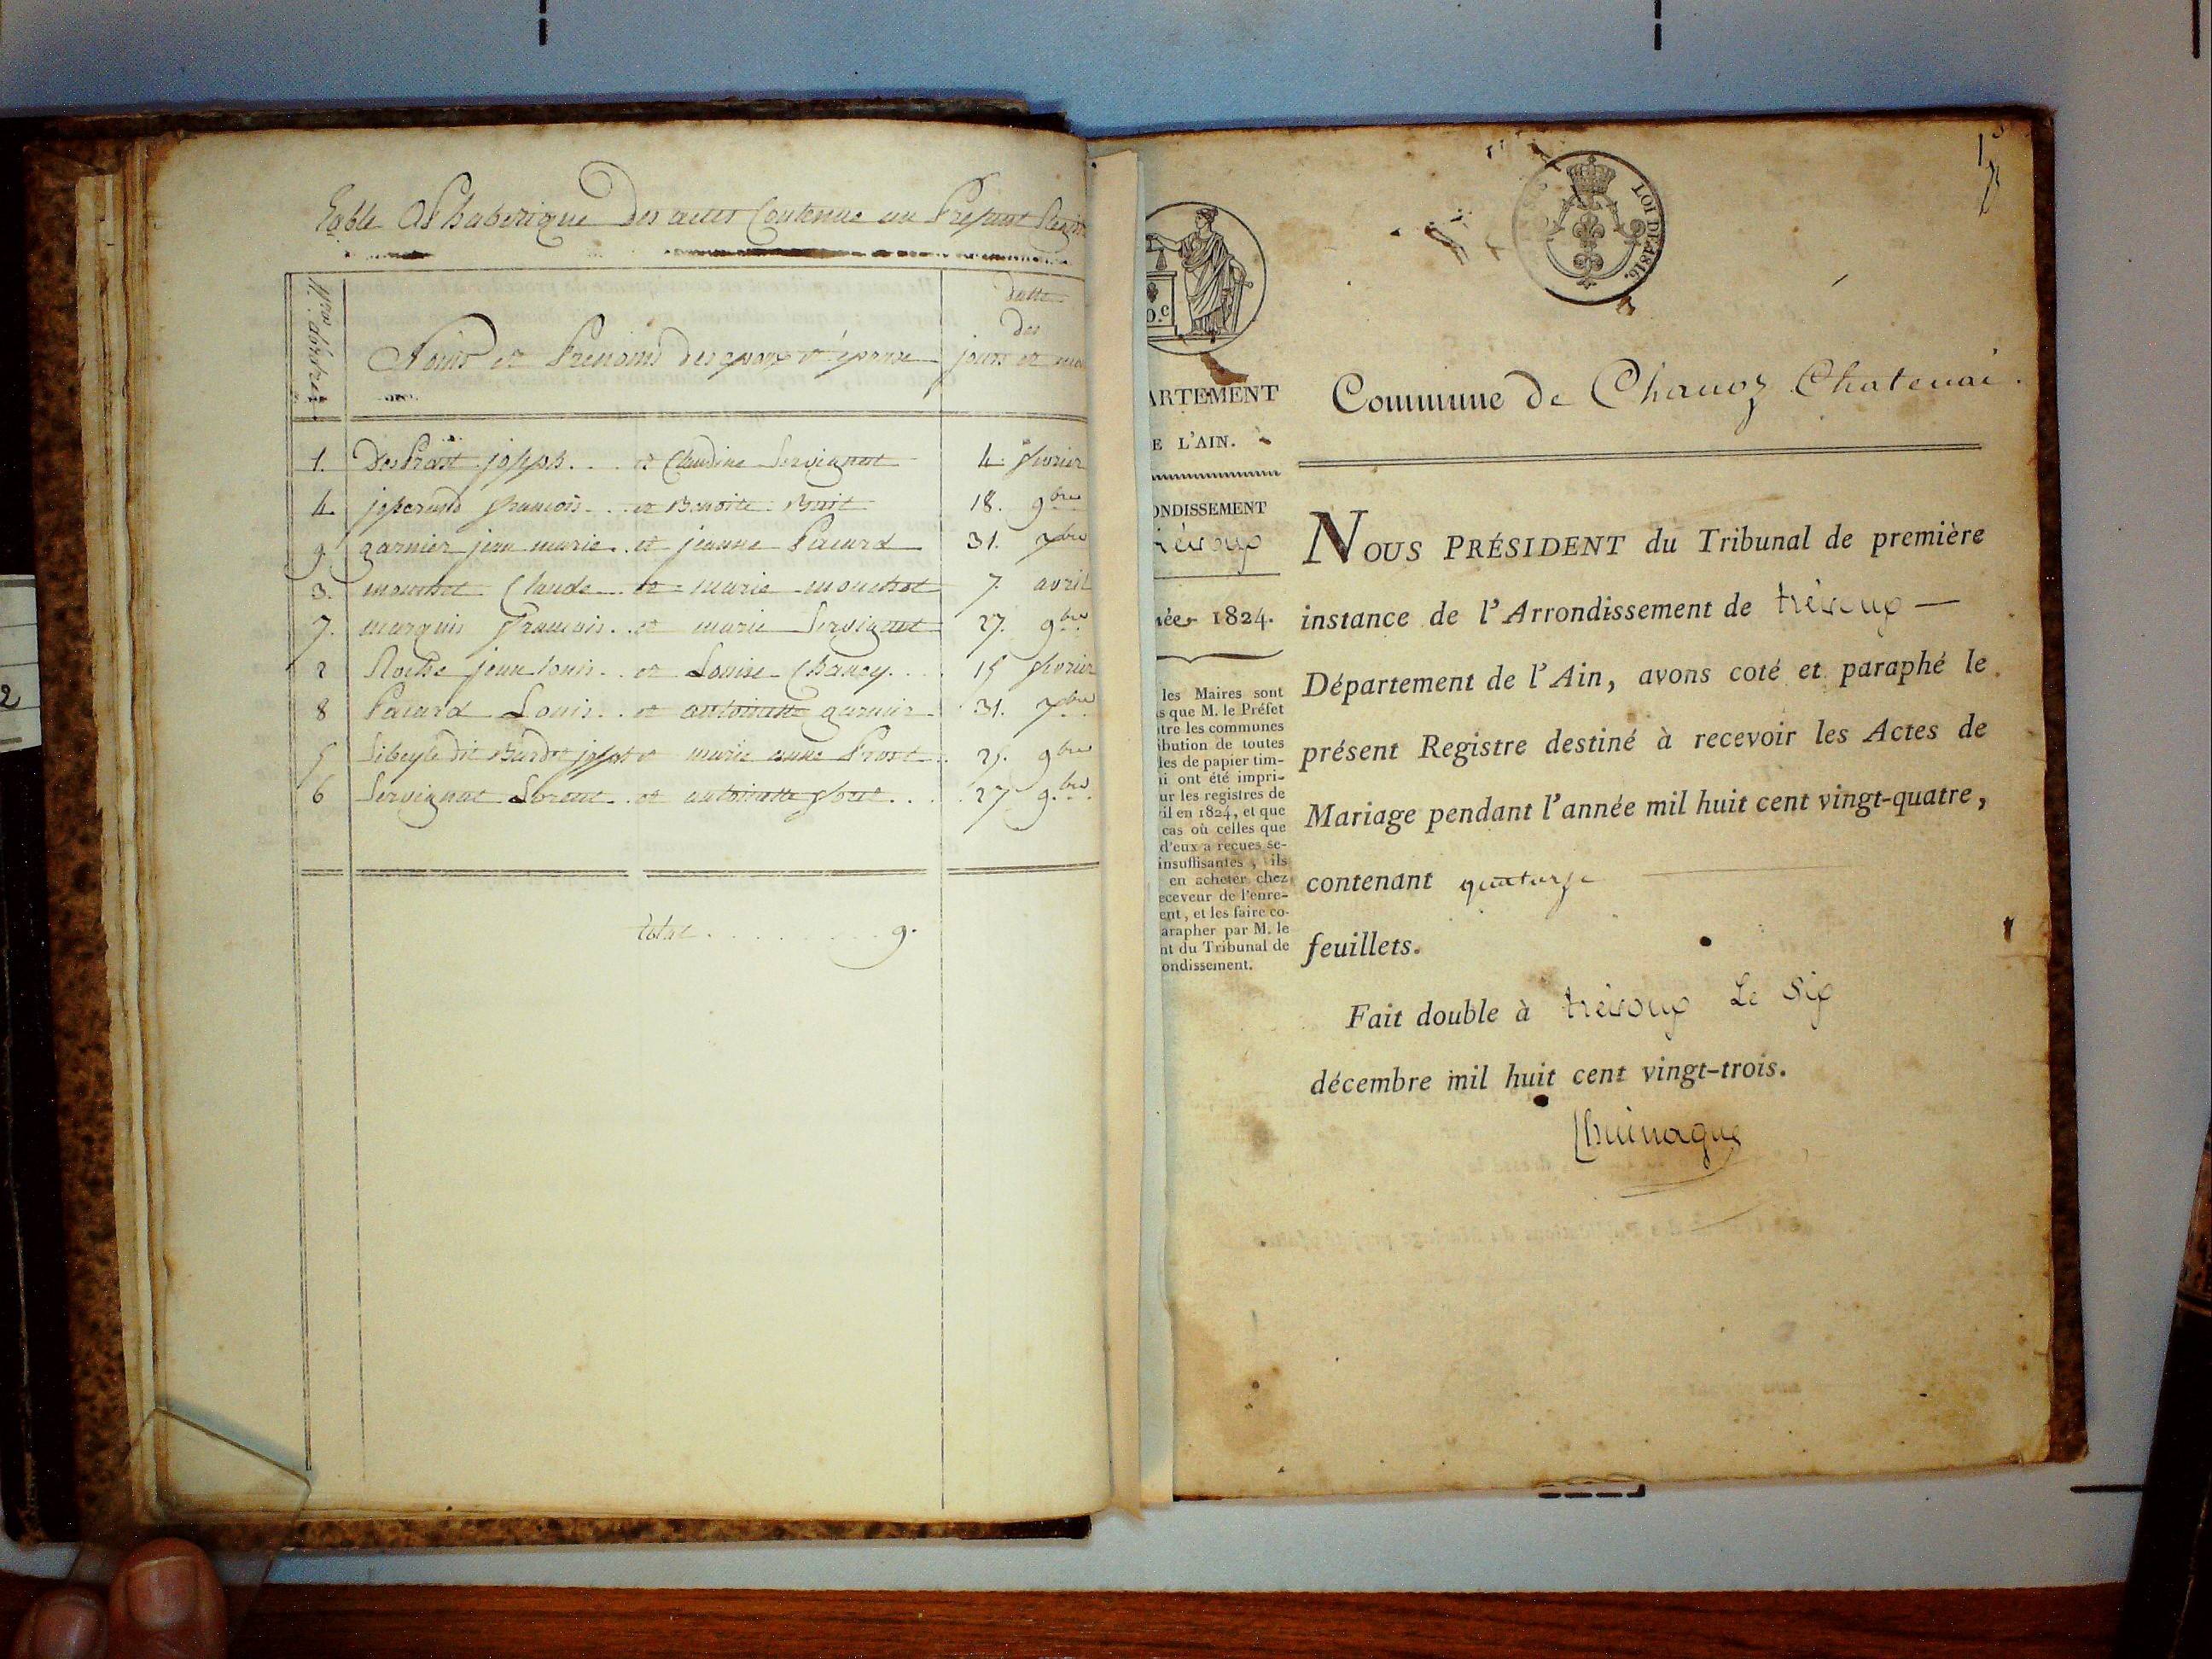 Table Alphabetique des actes Contenue au Présent Regist
Nos d'ordre
Noms et Prenoms des epoux et épouse
datte
des
jours et mo
1. DesPrast joseph... et Claudine Servignat 4 fevrier
4. françois.. et Benoite 18. 9bre
9. garnier jean marie. et jeanne Pacard 31. Xbre
3. mouchot Claude et marie mouchot 7. avril
7. marquis françois.. et marie Servignat 27. 9bre
2 Roche jean louis.. et Louise Chanoy.. 15 fevrier
8 Pacard Louis.. et antoinette garnier 31. Xbre
5 dit et marie anne Prost 25. 9bre
6 Servignat Lorent.. et antoinette 27 9.bre
total.......... 9.
LOI DE 1816.
D.C
ARTEMENT
E L'AIN.
ONDISSEMENT
révoux
née 1824.
les Maires sont
s que M. le Préfet
tre les communes
ibution de toutes
les de papier tim-
i ont été impri-
ur les registres de
il en 1824, et que
cas où celles que
d'eux a reçues se-
insuffisantes, ils
en acheter chez
eceveur de l'enre-
ent, et les faire co-
arapher par M. le
nt du Tribunal de
ondissement.
Commune de Chanoz Chatenai.
NOUS PRÉSIDENT du Tribunal de première
instance de l'Arrondissement de trévoux —
Département de l'Ain, avons coté et paraphé le
présent Registre destiné à recevoir les Actes de
Mariage pendant l'année mil huit cent vingt-quatre,
contenant quatorze
feuillets.
Fait double à trévoux Le Six
décembre mil huit cent vingt-trois.